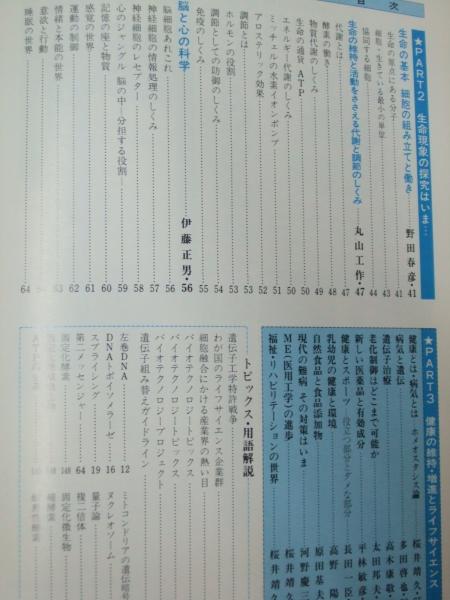 目次
★PART2 生命現象の探究はいま…
生命の基本 細胞の組み立てと働き 野田春彦・41
生命の原点にある分子 41
細胞・生きている最小の単位 43
協同する細胞 44
生命の維持と活動をささえる代謝と調節のしくみ 丸山工作・47
代謝とは 47
酵素の働き 48
物質代謝のしくみ 49
エネルギー代謝のしくみ 50
生命の通貨 ATP 50
ミッチェルの水素イオンポンプ 51
アロステリック効果 52
調節とは 53
ホルモンの役割 53
調節としての防御のしくみ 54
免疫のしくみ 55
脳と心の科学 伊藤正男・56
脳細胞あれこれ 56
神経細胞の情報処理のしくみ 57
神経細胞のレセプター 58
心のジャングル 脳の中 分担する役割 59
記憶の座と物質 60
感覚の世界 61
運動の制御 62
情緒と本能の世界 63
意欲と行動
睡眠の世界 64
★PART3 健康の維持・増進とライフサイエンス
健康とは・病気とは ホメオスタシス論 桜井靖久
病気と遺伝 多田啓也
遺伝子治療 高木康敬
老化制御はどこまで可能か 太田邦夫
新しい医薬品と有効成分 平林敏彦
健康とスポーツ 役とつ部分とダメな部分 長田一臣
乳幼児の健康と環境 高野陽
自然食品と食品添加物 原田基夫
現代の難病 その対策はいま 河野慶三
ME(医用工学)の進歩 桜井靖久
福祉・リハビリテーションの世界 桜井靖久
トピックス・用語解説
遺伝子工学特許戦争
わが国のライフサイエンス企業群
細胞融合にかける産業界の熱い目
バイオテクノロジートピックス
バイオテクノロジープロジェクト
遺伝子組み替えガイドライン
左巻DNA 12
DNAトポイソメラーゼ 16
スプライシング 19
第二メッセンジャー 64
固定化酵素 148
ミトコンドリアの遺伝暗号
ヌクレオソーム
量子論
複二倍体
固定化微生物